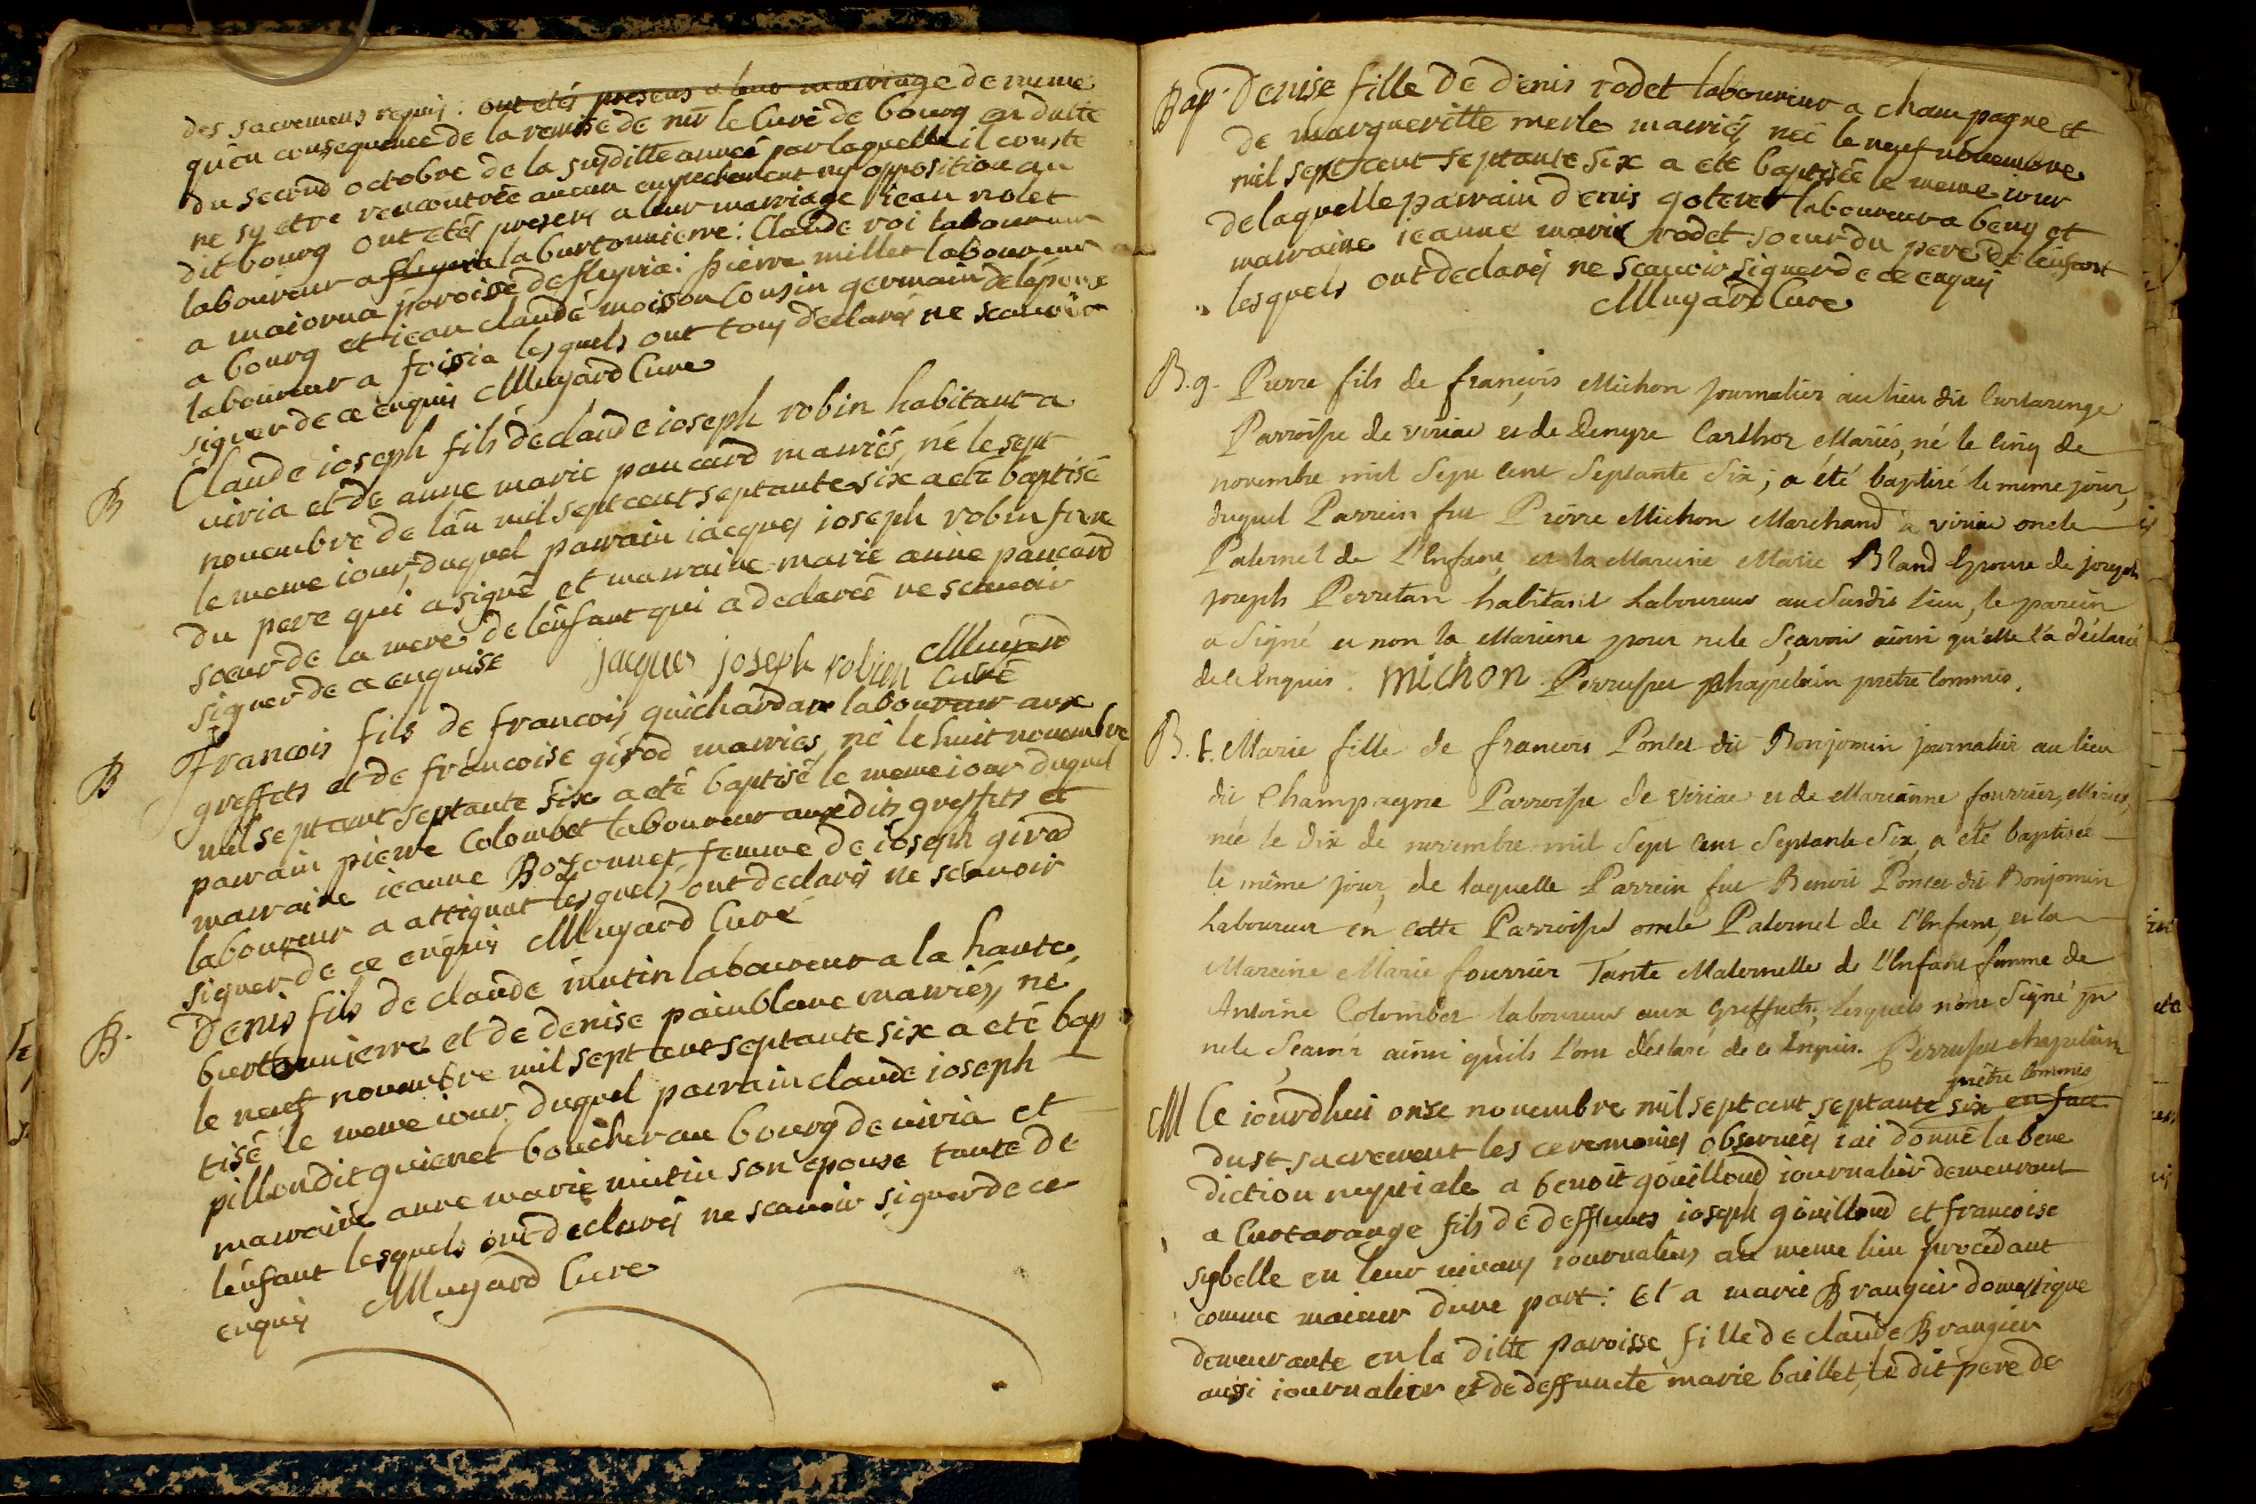 des sacremens requis: ont etés presens a leur mariage de meme
qu'en consequence de la remise de mr le Curé de bourg en datte
du second octobre de la susditte année par laquelle il conste
ne sy etre rencontrée aucun empechement ny opposition au
dit bourg ont etés presens a leur mariage jean nolet
laboureur a fleyria la burtonnierre: Claude roi laboureur
a maiorna paroisse de fleyria: pierre millet laboureur
a bourg et jean claude moisson Cousin germain de lépouse
laboureur a foissia lesquels ont tous declarés ne scauoir
signer de ce enquis Mugard Cure
B Claude ioseph fils de claude ioseph robin habitant a
viria et de anne marie pancard mariés, né le sept
nouembre de lan mil sept cent septante six a eté baptisé
le meme iour, duquel parrain iacques ioseph robin frere
du pere qui a signé et marraine marie anne pancard
soeur de la mere de lenfant qui a declarée ne scauoir
signer de ce enquise jacques joseph robin Mugard
Curé
B François fils de francois guichardan laboureur aux
greffets et de francoise girod mariés, né le huit nouembre
mil sept cent septante six a eté baptisé le meme iour duquel
parrain pierre Colombet laboureur auxdits greffets et
marraine ieanne Bozonnet femme de ioseph girod
laboureur a attignat lesquels ont declarés ne scauoir
signer de ce enquis Mugard Curé
B. Denis fils de claude mutin laboureur a la haute
burtonnierre et de denise painblanc mariés, né
le neuf nouembre mil sept cent septante six a eté bap
tisé le meme iour, duquel parrain claude ioseph
pillon dit quienet boucher au bourg de viria et
marraine anne marie mutin son epouse tante de
lenfant lesquels ont declarés ne scauoir signer de ce
enquis Mugard Cure
Bap. Denise fille de denis rodet laboureur a champagne et
de margueritte merle mariés née le neuf nouembre
mil sept cent septante six a eté baptisée le meme iour
de laquelle parrain denis goteret laboureur a beny et
marraine ieanne marie rodet soeur du pere de lenfant
lesquels ont declarés ne scauoir signer de ce enquis
Mugard Cure
B. g. Pierre fils de françois Michon journalier au lieu dit Curtarenge
Parroisse de viriac et de Denyse Carthoz Mariés, né le Cinq de
novembre mil Sept Cent Septante Six; a été baptisé le meme jour,
duquel Parrein fut Pierre Michon Marchand à viriac oncle
Paternel de L'Enfant, et la Mareine Marie Bland Epouse de joseph
joseph Perretan habitant Laboureur au Susdit lieu, le parein
a Signé et non la Mareine pour ne le Sçavoir ainsi qu'elle l'a déclaré
de ce Enquis. Michon Perrusset Chapelain prêtre Commis.
B. f. Marie fille de francois Poncet dit Bonjomin journalier au lieu
dit Champagne Parroisse de viriac et de Marianne fourrier, Mariés,
née le dix de novembre mil Sept Cent Septante Six, a été baptisée
le même jour, de laquelle Parrein fut Benoit Poncet dit Bonjomin
Laboureur en cette Parroisse oncle Paternel de l'Enfant, et la
Mareine Marie fourrier Tante Maternelle de l'Enfant femme de
Antoine Colombet laboureur aux Greffets, lesquels n'ont Signé pr
ne le Sçavoir ainsi qu'ils l'ont déclaré de ce Enquis. Perrusset chapelain
prêtre Commis
M Ce iourdhui onse nouembre mil sept cent septante six en face
du st sacrement les ceremonies obseruées iai donné la bene
diction nuptiale a benoit goüilloud iournalier demeurant
a Curtarange fils de deffunts ioseph goüilloud et francoise
sybelle en leur uiuans iournaliers au meme lieu procedant
comme maieur dune part: Et a marie Brangier domestique
demeurante en la ditte paroisse fille de claude Brangier
aussi iournalier et de deffuncte marie baillet, le dit pere de